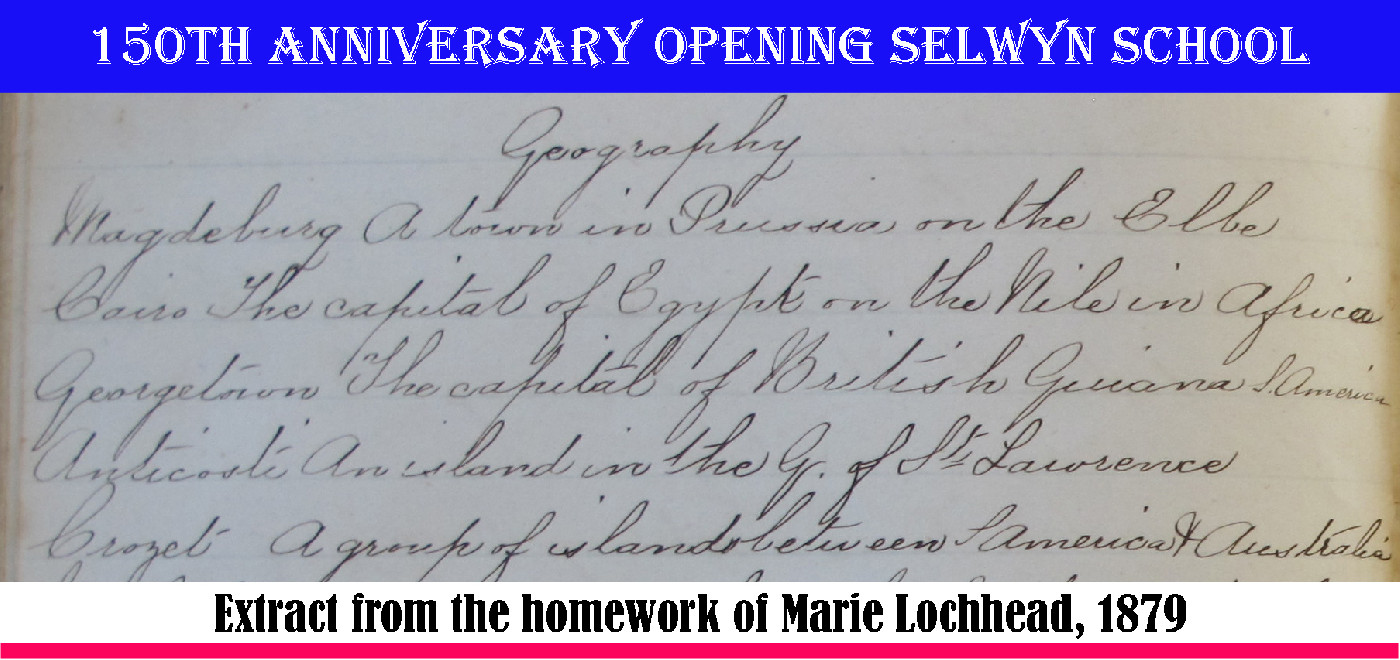 150TH ANNIVERSARY OPENING SELWYN SCHOOL
Geography
Magdeburg A town in Prussia on the Elbe
Cairo The capital of Egypt on the Nile in Africa
Georgetown The capital of British Guiana S. America
Anticosti An island in the G. of St Lawrence
Crozet A group of islands between S America & Australia
Extract from the homework of Marie Lochhead, 1879